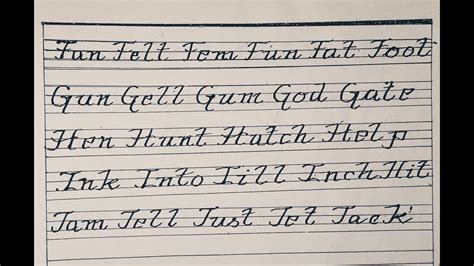 Fan Felt Fem Fun Fat Foot
Gun Gell Gum God Gate
Hen Hunt Hutch Help
Ink Into Iill Inch Hit
Jam Jell Just Jet Jack